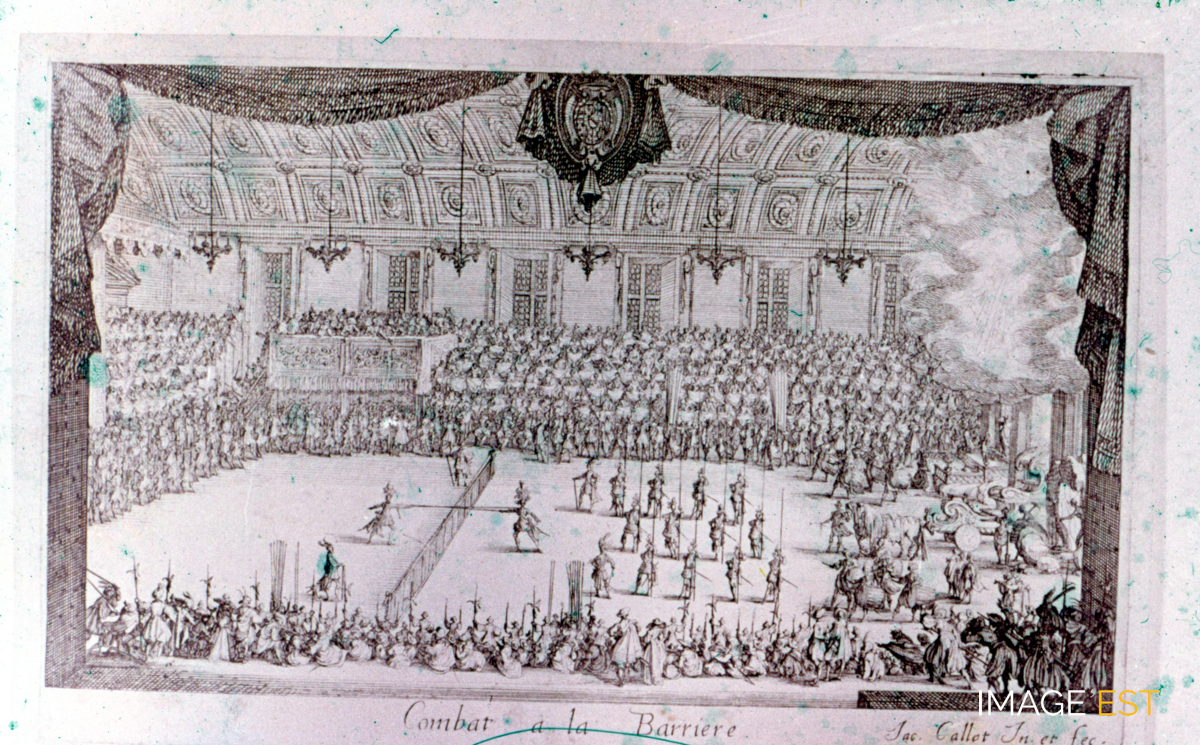 Combat a la Barriere
Jac. Callot In. et fec.
IMAGE'EST